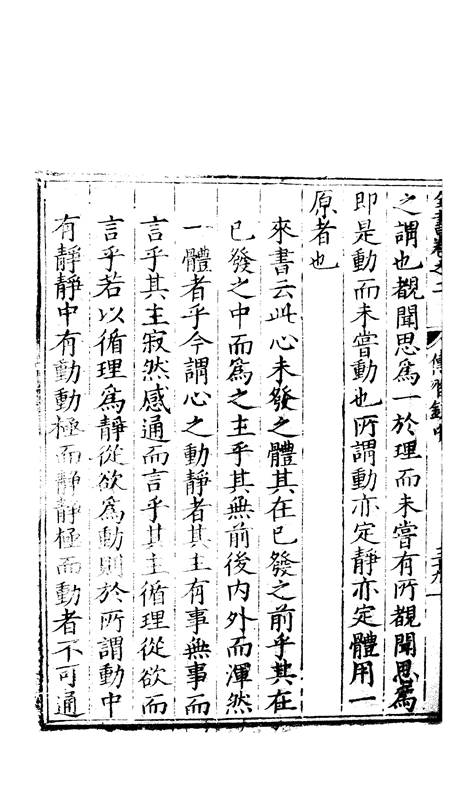 全書卷之二　傳習錄中　三十九
之謂也覩聞思為一於理而未嘗有所覩聞思為
即是動而未嘗動也所謂動亦定靜亦定體用一
原者也
來書云此心未發之體其在已發之前乎其在
已發之中而為之主乎其無前後內外而渾然
一體者乎今謂心之動靜者其主有事無事而
言乎其主寂然感通而言乎其主循理從欲而
言乎若以循理為靜從欲為動則於所謂動中
有靜靜中有動動極而靜靜極而動者不可通